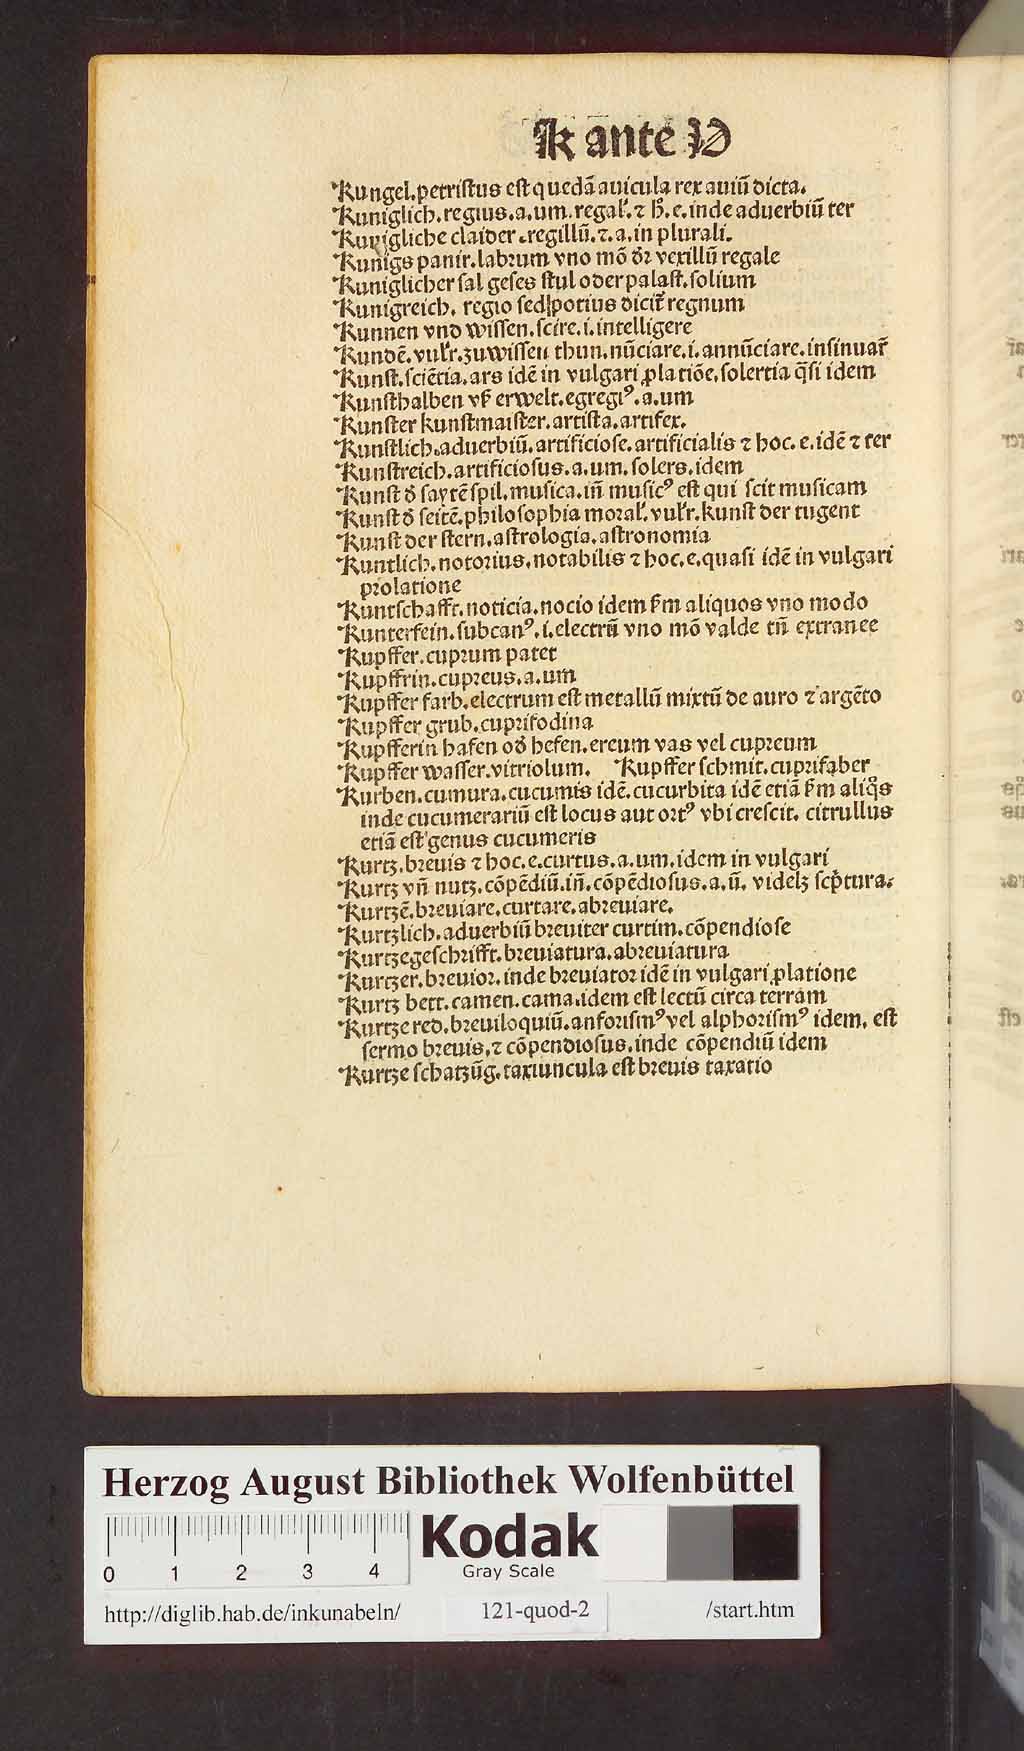 K ante V
Kungel.petristus est quedā auicula rex auiū dicta.
Kuniglich.regius.a.um.regaľ.⁊ h̊.e.inde aduerbiū ter
Kunigliche claider.regillū.⁊.a.in plurali.
Kunigs panir.labꝛum vno mō ðꝛ vexillū regale
Kuniglicher sal geses stul oder palast.solium
Kunigreich. regio sed potius dicit̃ regnum
Kunnen vnd wissen.scire.i.intelligere
Kundē.vuľr.zuwissen thun.nūciare.i.annūciare.insinuar̃
Kunst.sciētia.ars idē in vulgari ꝓlatiōe.solertia q̄si idem
Kunsthalben vß erwelt.egregiꝰ.a.um
Kunster kunstmaister.artista.artifex.
Kunstlich.aduerbiū.artificiose.artificialis ⁊ hoc.e.idē ⁊ ter
Kunstreich.artificiosus.a.um.solers.idem
Kunst ð saytēspil.musica.iñ musicꝰ est qui scit musicam
Kunst ð seitē.philosophia moꝛaľ.vuľr.kunst der tugent
Kunst der stern.astrologia.astronomia
Kuntlich.notoꝛius.notabilis ⁊ hoc.e.quasi idē in vulgari
pꝛolatione
Kuntschafft.noticia.nocio idem ẜm aliquos vno modo
Kunterfein.subcanꝰ.i.electrū vno mō valde tñ extranee
Kupffer.cupꝛum patet
Kupffrin.cupꝛeus.a.um
Kupffer farb.electrum est metallū mixtū de auro ⁊ argēto
Kupffer grub.cupꝛifodina
Kupfferin hafen oð hefen.ereum vas vel cupꝛeum
Kupffer wasser.vitriolum. Kupffer schmit.cupꝛifaber
Kurben.cumura.cucumis idē.cucurbita idē etiā ẜm aliq̊s
inde cucumerariū est locus aut oꝛtꝰ vbi crescit. citrullus
etiā est genus cucumeris
Kurtz.bꝛeuis ⁊ hoc.e.curtus.a.um.idem in vulgari
Kurtz vñ nutz.cōpēdiū.iñ.cōpēdiosus.a.ū. videlz scp̃tura.
Kurtzē.bꝛeuiare.curtare.abꝛeuiare.
Kurtzlich.aduerbiū bꝛeuiter curtim.cōpendiose
Kurtzegeschꝛifft.bꝛeuiatura.abꝛeuiatura
Kurtzer.bꝛeuioꝛ.inde bꝛeuiatoꝛ idē in vulgari ꝓlatione
Kurtz bett.camen.cama.idem est lectū circa terram
Kurtze red.bꝛeuiloquiū.anfoꝛismꝰ vel alphoꝛismꝰ idem. est
sermo bꝛeuis.⁊ cōpendiosus.inde cōpendiū idem
Kurtze schatzūg.taxiuncula est bꝛeuis taxatio
Herzog August Bibliothek Wolfenbüttel
0 1 2 3 4
Kodak
Gray Scale
http://diglib.hab.de/inkunabeln/ 121-quod-2 /start.htm